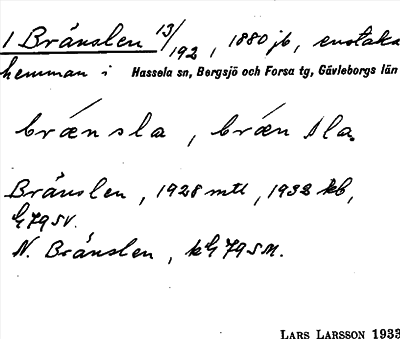 1 Bränslen 13/192, 1880 jb, enstaka
hemman i Hassela sn, Bergsjö och Forsa tg, Gävleborgs län
brǽnsla, brǽnsla.
Bränslen, 1928 mtl, 1932 kb,
G79SV.
N. Bränslen, kG79SM.
LARS LARSSON 1933